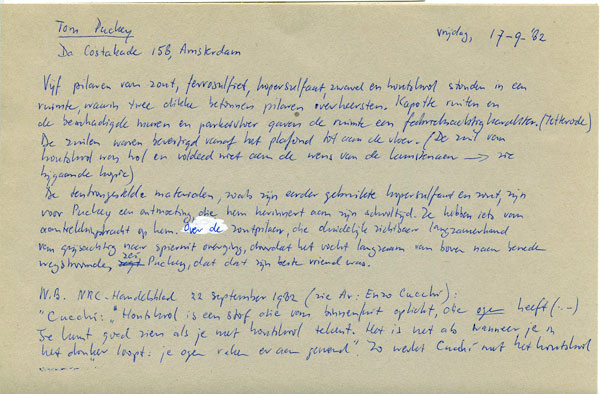 Tom Puckey
Da Costakade 158, Amsterdam
vrijdag, 17-9-'82
Vijf pilaren van zout, ferrosulfiet, kopersulfaat, zwavel en houtskool stonden in een
ruimte, waarin twee dikke betonnen pilaren overheersten. Kapotte ruiten en
de beschadigde muren en parketvloer gaven de ruimte een fabrieksachtig karakter. (Tetterode)
De zuilen waren bevestigd vanaf het plafond tot aan de vloer. (De zuil van
houtskool was hol en voldeed niet aan de wens van de kunstenaar → zie
bijgaande kopie)
De tentoongestelde materialen, zoals zijn eerder gebruikte kopersulfaat en zout, zijn
voor Puckey een ontmoeting, die hem herinnert aan zijn schooltijd. Ze hebben iets van
aantrekkingskracht op hem. Over de zoutpilaar, die duidelijk zichtbaar langzamerhand
van grijsachtig naar spierwit overging, doordat het vocht langzaam van boven naar beneden
wegstroomde, zei Puckey, dat dat zijn beste vriend was.
N.B. NRC-Handelsblad 22 September 1982 (zie Av: Enzo Cucchi):
"Cucchi: "Houtskool is een stof die van binnenuit oplicht, die ogen heeft (...)
Je kunt goed zien als je met houtskool tekent. Het is net als wanneer je in
het donker loopt: je ogen raken er aan gewend". Zo werkt Cucchi met het houtskool